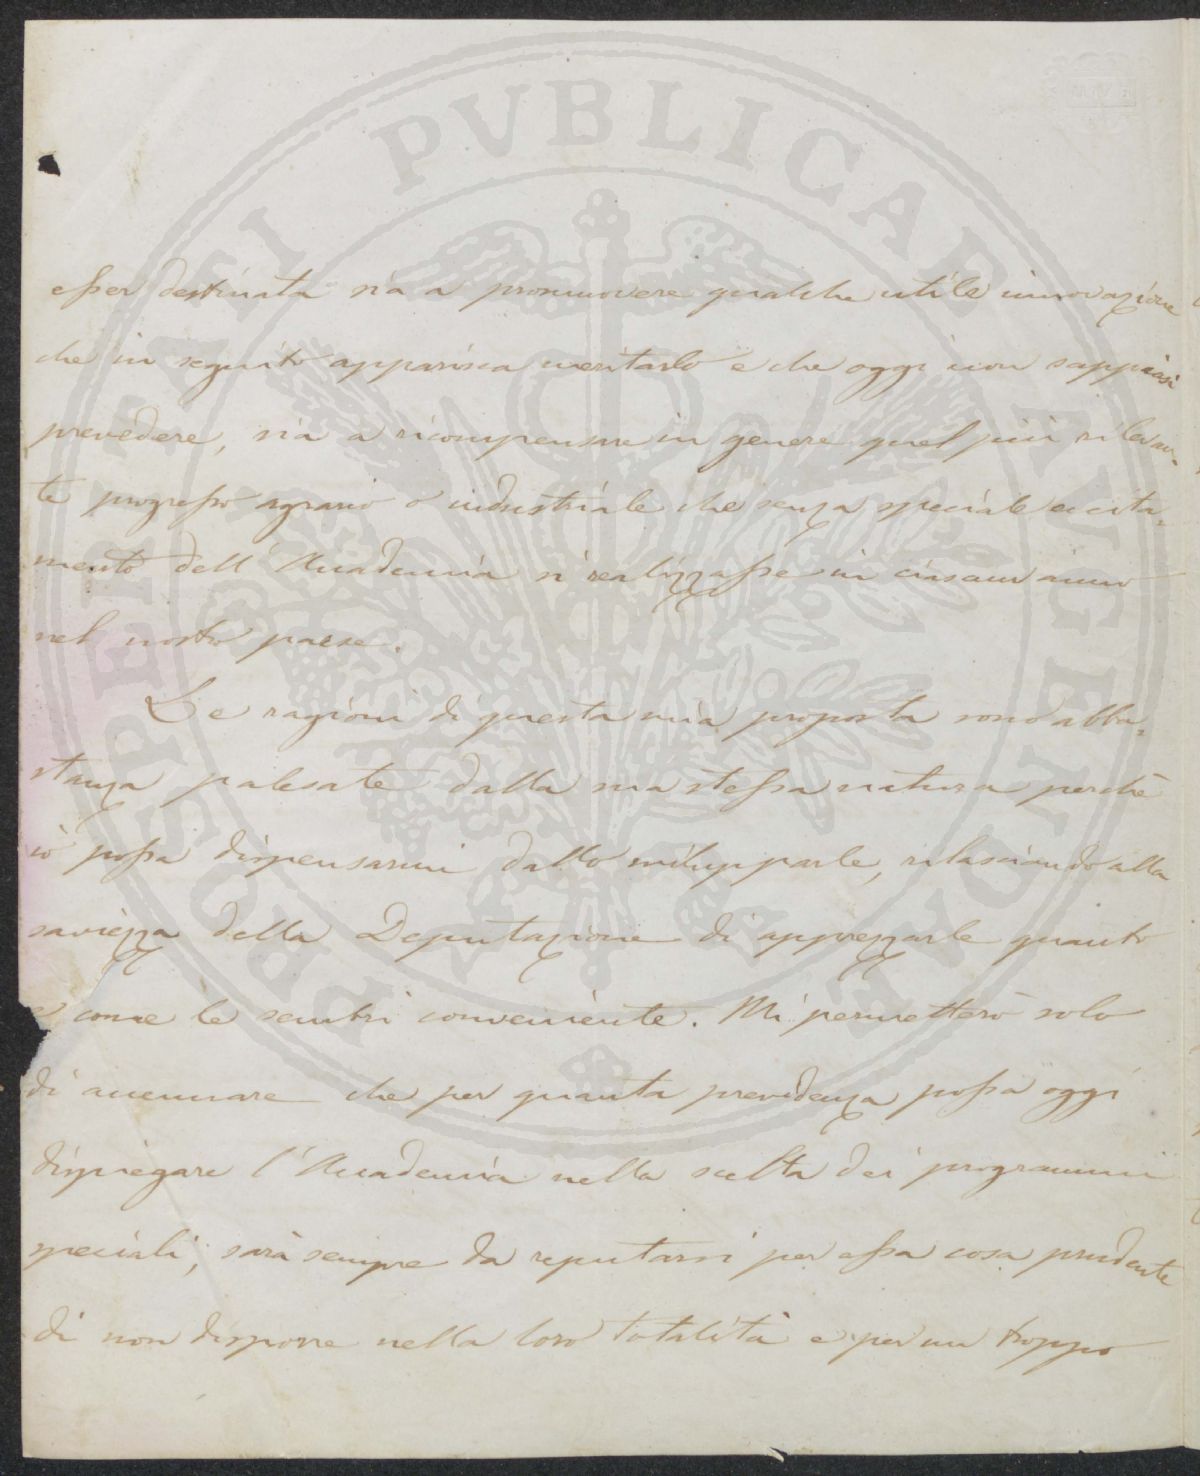 PROSPERITATI PVBLICAE AVGENDAE
esser destinata sia a promuovere qualche utile innovazione
che in seguito apparisca meritarlo e che oggi non sappiasi
prevedere, sia a ricompensare in genere quel più rilevan-
te progresso agrario o industriale che senza speciale eccita-
mento dell'Accademia si realizzasse in ciascun anno
nel nostro paese.
Le ragioni di questa mia proposta sono abba-
stanza palesate dalla sua stessa natura perchè
io possa dispensarmi dallo svilupparle, rilasciando alla
saviezza della Deputazione di apprezzarle quanto
e come le sembri conveniente. Mi permetterò solo
di accennare che per quanta previdenza possa oggi
dispiegare l'Accademia nella scelta dei programmi
speciali, sarà sempre da reputarsi per essa cosa prudente
di non disporre nella loro totalità e per un troppo